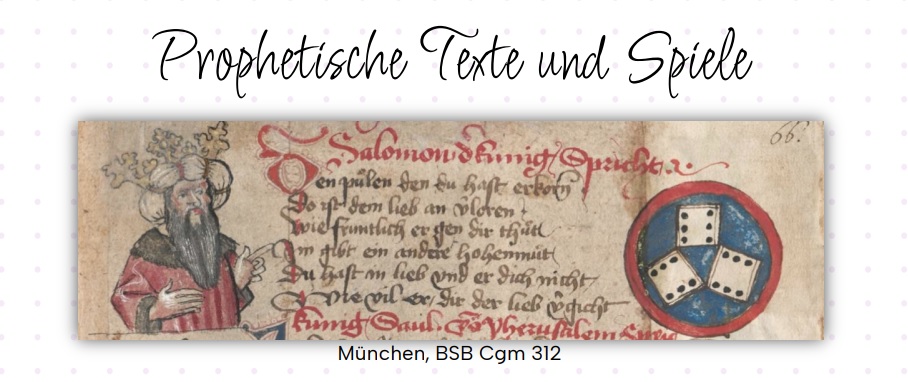 Prophetische Texte und Spiele
66.
Salomon d kunig Spricht
Den půlen den du hast erkorn
Do ist dem lieb an v̉loren
wie fruntlich er gen dir thůt
Im gibt ein andere hohenmůt
Du hast in lieb vnd er dich nicht
Wie vil er dir der lieb v̉gicht
kunig Saul
München, BSB Cgm 312